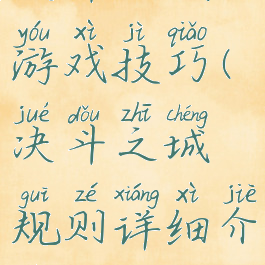 yóu xì jì qiǎo
游戏技巧(
jué dǒu zhī chéng
决斗之城
guī zé xiáng xì jiè
规则详细介